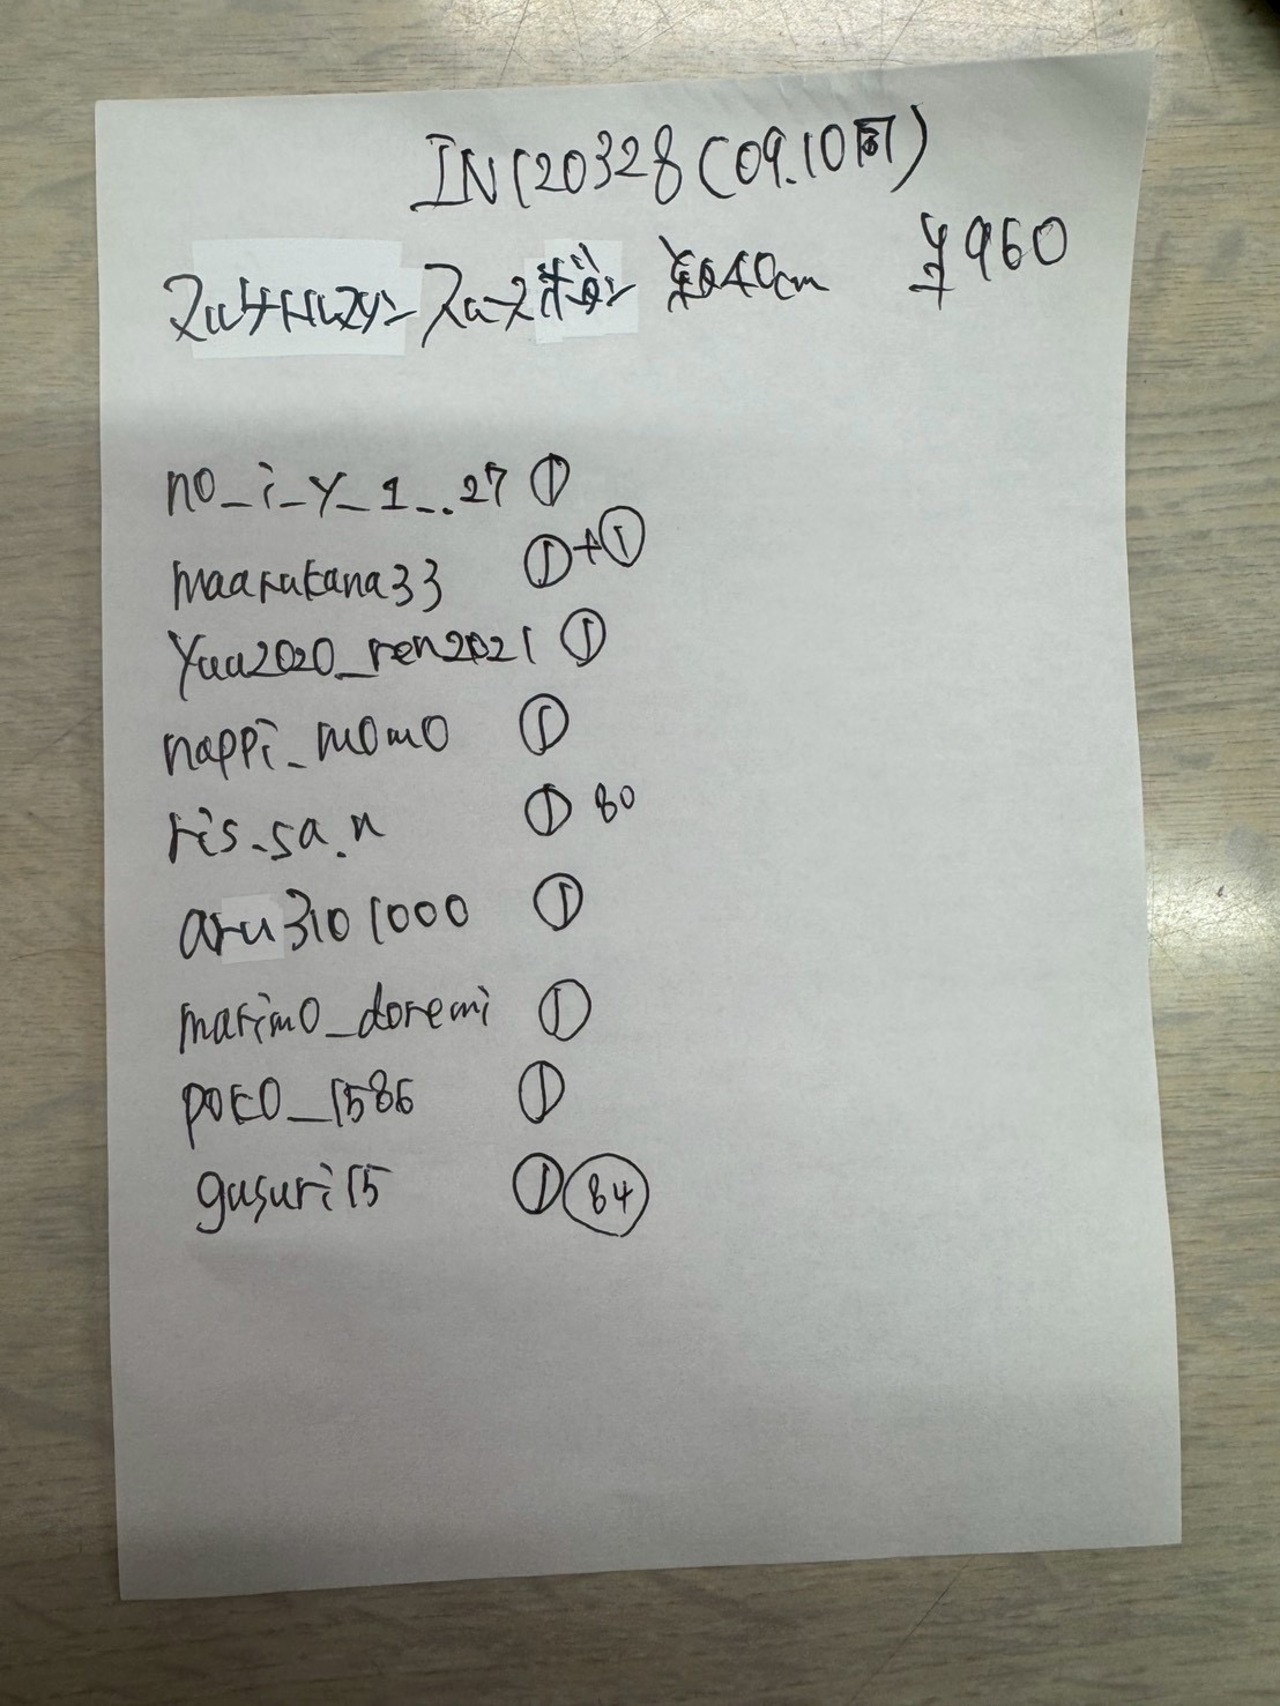 IN120328(09.10同)
約40cm ¥960
no_i_y_1_..27 ①
maarukana33 ①+①
yua2020_ren2021 ①
nappi_momo ①
ris_sa.n ① 80
aru3101000 ①
marimo_doremi ①
poko_1586 ①
gusuri15 ① 84